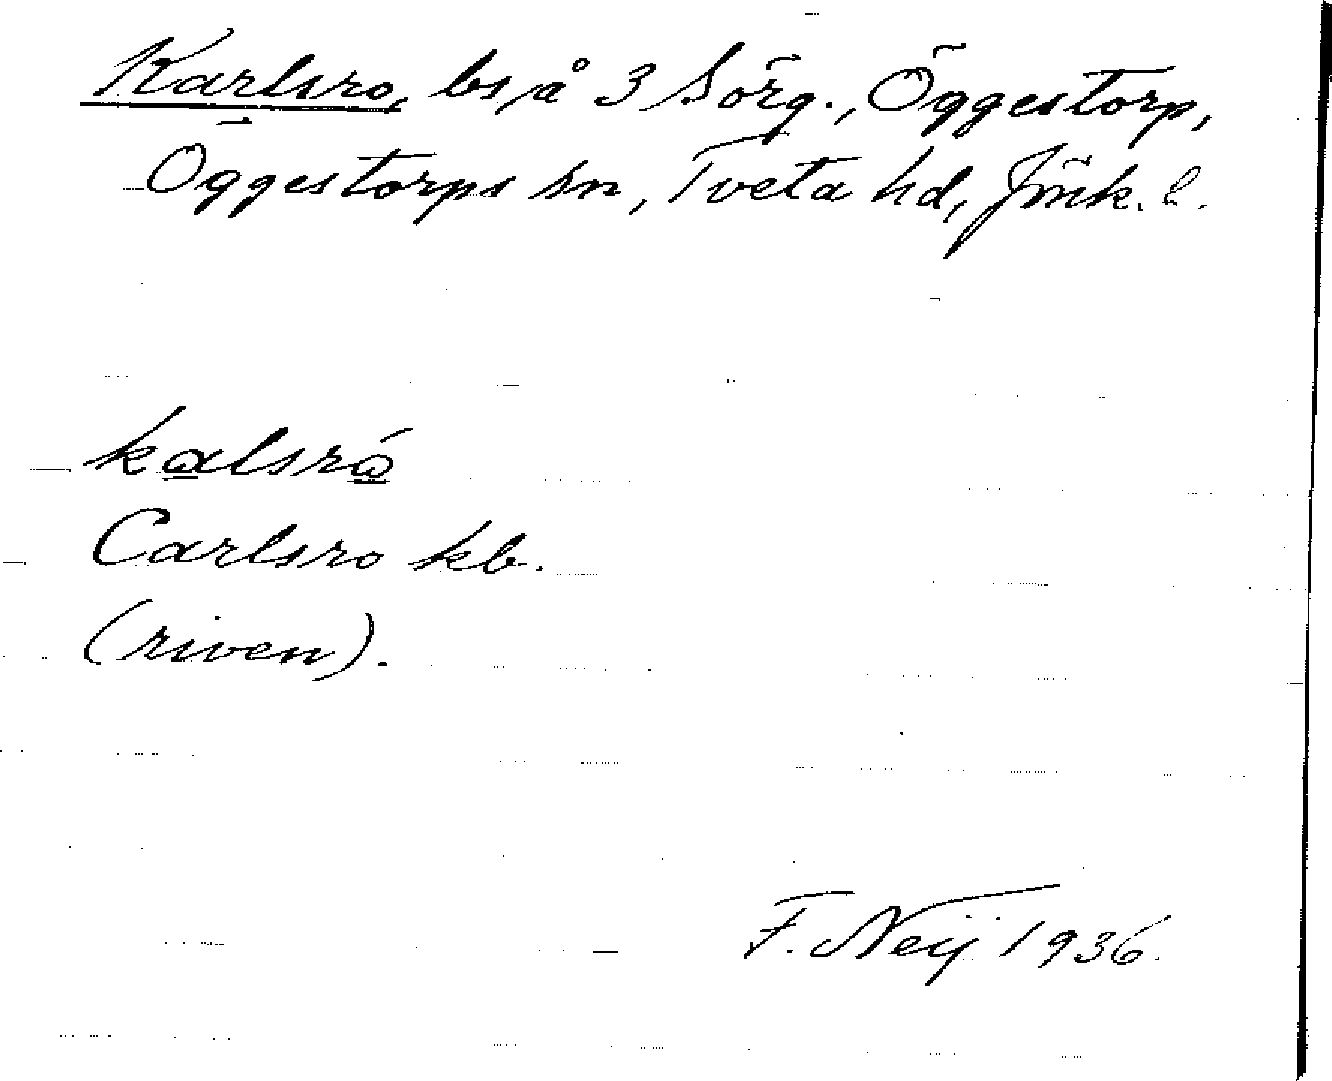 Karlsro, bs, å 3 Sörg., Öggestorp,
Öggestorps sn, Tveta hd, Jönk. l.
kalsrώ̲
Carlsro kb.
(riven).
F. Neij 1936.